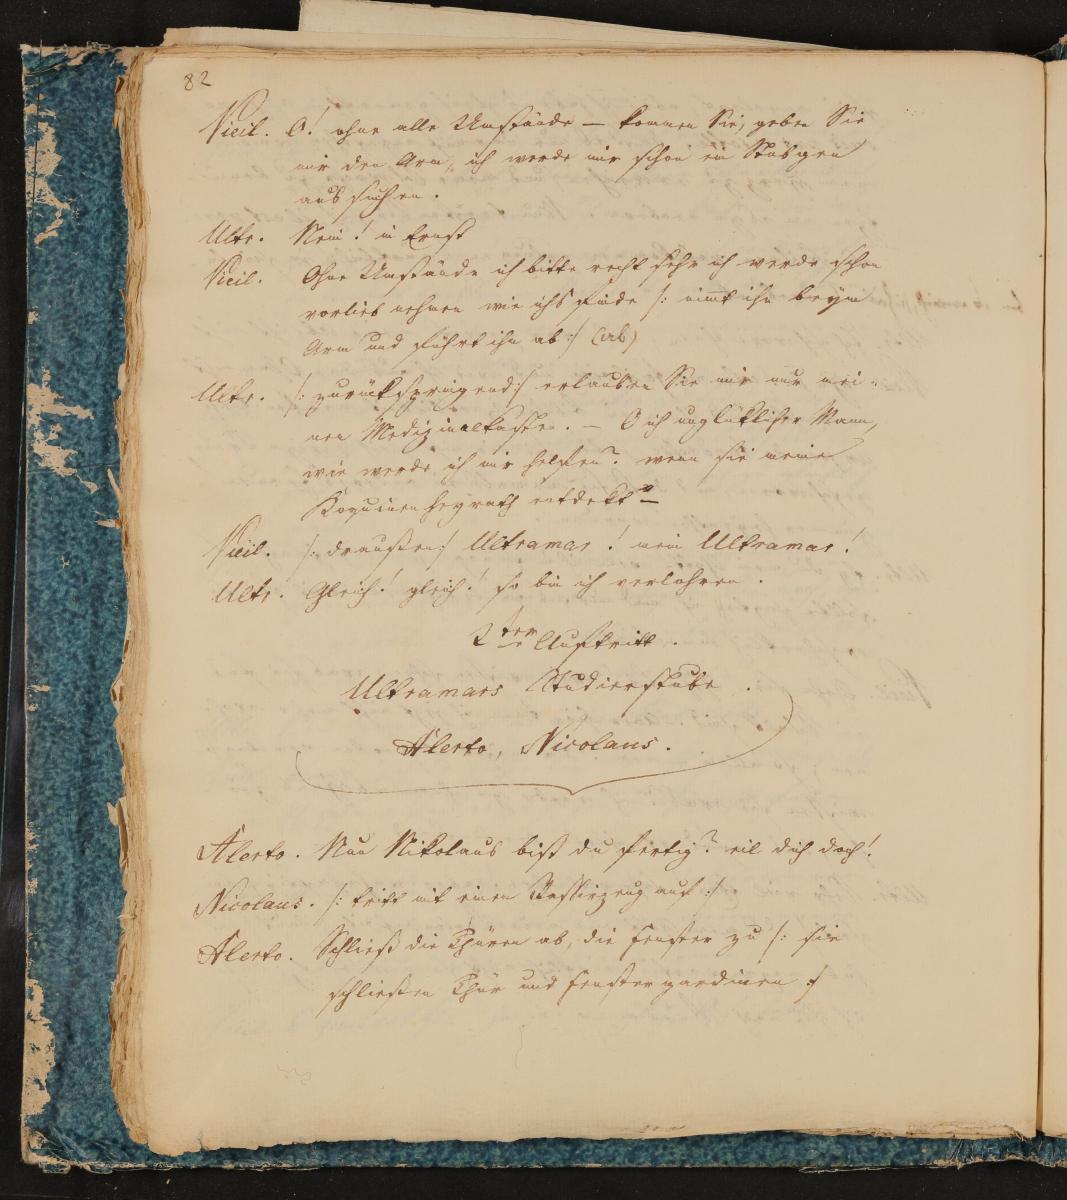 82
Vicil. O! ohne alle Umstände – kommen Sie, geben Sie
mir den Arm, ich werde mir schon ein Stübgen
aussuchen.
Ultr. Nein! in Ernst
Vicil. Ohne Umstände ich bitte recht sehr ich werde schon
vorlieb nehmen wie ichs finde /: nimt ihn beym
Arm und führt ihn ab :/ (ab)
Ultr. /: zurückspringend :/ erlauben Sie mir nur mei-
nen Medizinalkasten. – O ich unglüklicher Mann,
wie werde ich mir helfen? wenn sie meine
entdekt –
Vicil. /: draußen :/ Ultramar! mein Ultramar!
Ultr. Gleich! gleich! so bin ich verlohren.
2ter Auftritt.
Ultramars Studierstube.
Alerto, Nicolaus.
Alerto. Nun Nikolaus bist du fertig? eil dich doch!
Nicolaus. /: tritt mit einen auf :/
Alerto. Schließ die Thüren ab, die Fenster zu /: sie
schließen Thür und Fenstergardinen :/